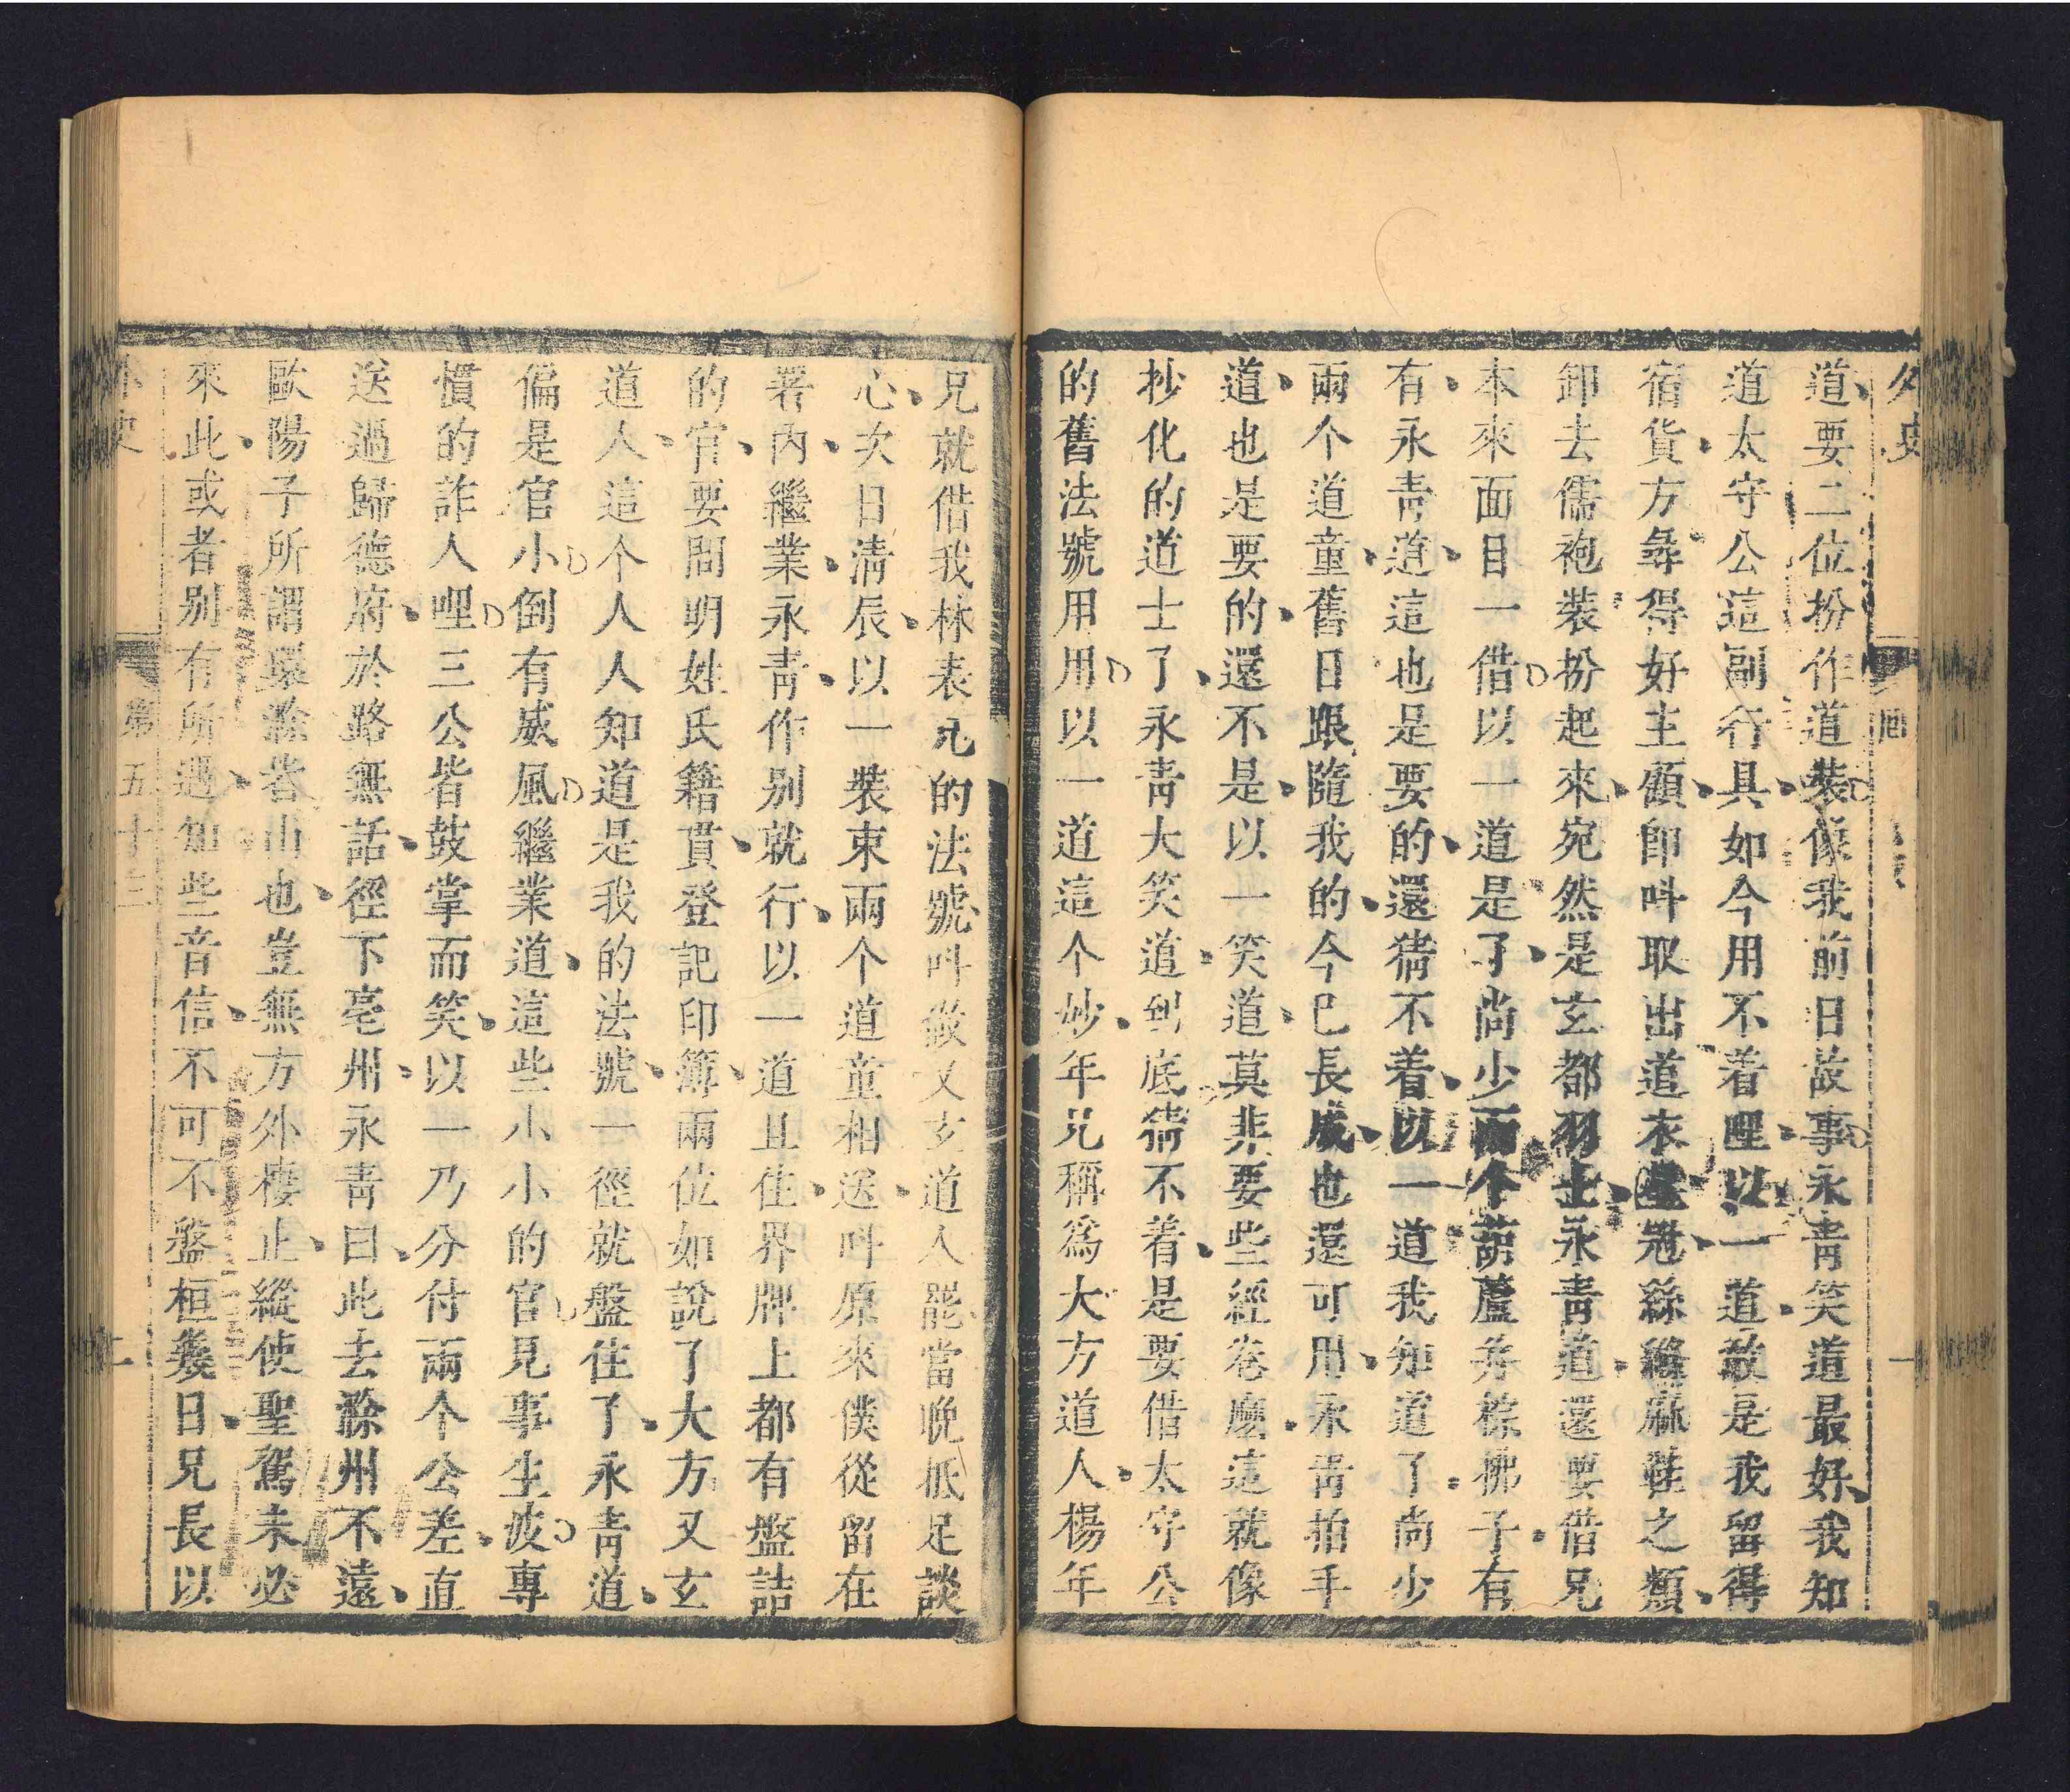 外史
道要二位扮作道裝像我前日故事永靑笑道最好我知
道太守公這副行具如今用不着哩以一道故是我留得
宿貨方彝得好主顧卽呌取出道衣冠絲縧麻鞋之類
卸去儒袍裝扮起來宛然是玄都羽士永靑道還要借兄
本來面目一借以一道是了尚少兩个葫蘆并棕拂子有
有永靑道這也是要的還猜不着以一道我知道了尚少
兩个道童舊日跟隨我的今已長成也還可用永靑拍手
道也是要的還不是以一笑道莫非要些經卷麽這就像
抄化的道士了永靑大笑道到底猜不着是要借太守公
的舊法號用用以一道這个妙年兄稱爲大方道人楊年
兄就借我林表兄的法號呌做又玄道人罷當晚抵足談
心次日淸辰以一裝束兩个道童相送呌原來僕從留在
署內繼業永靑作别就行以一道且住界牌上都有盤詰
的官要問明姓氏籍貫登記印簿兩位如說了大方又玄
道人這个人人知道是我的法號一徑就盤住了永靑道
偏是官小倒有威風繼業道這些小小的官見事生波專
慣的詐人哩三公皆鼓掌而笑以一乃分付兩个公差直
送過歸德府於路無話徑下亳州永靑曰此去滁州不遠
歐陽子所謂環滁皆山也豈無方外棲止縱使聖駕未必
來此或者别有所遇知些音信不可不盤桓幾日兄長以
外史 第五十三 二